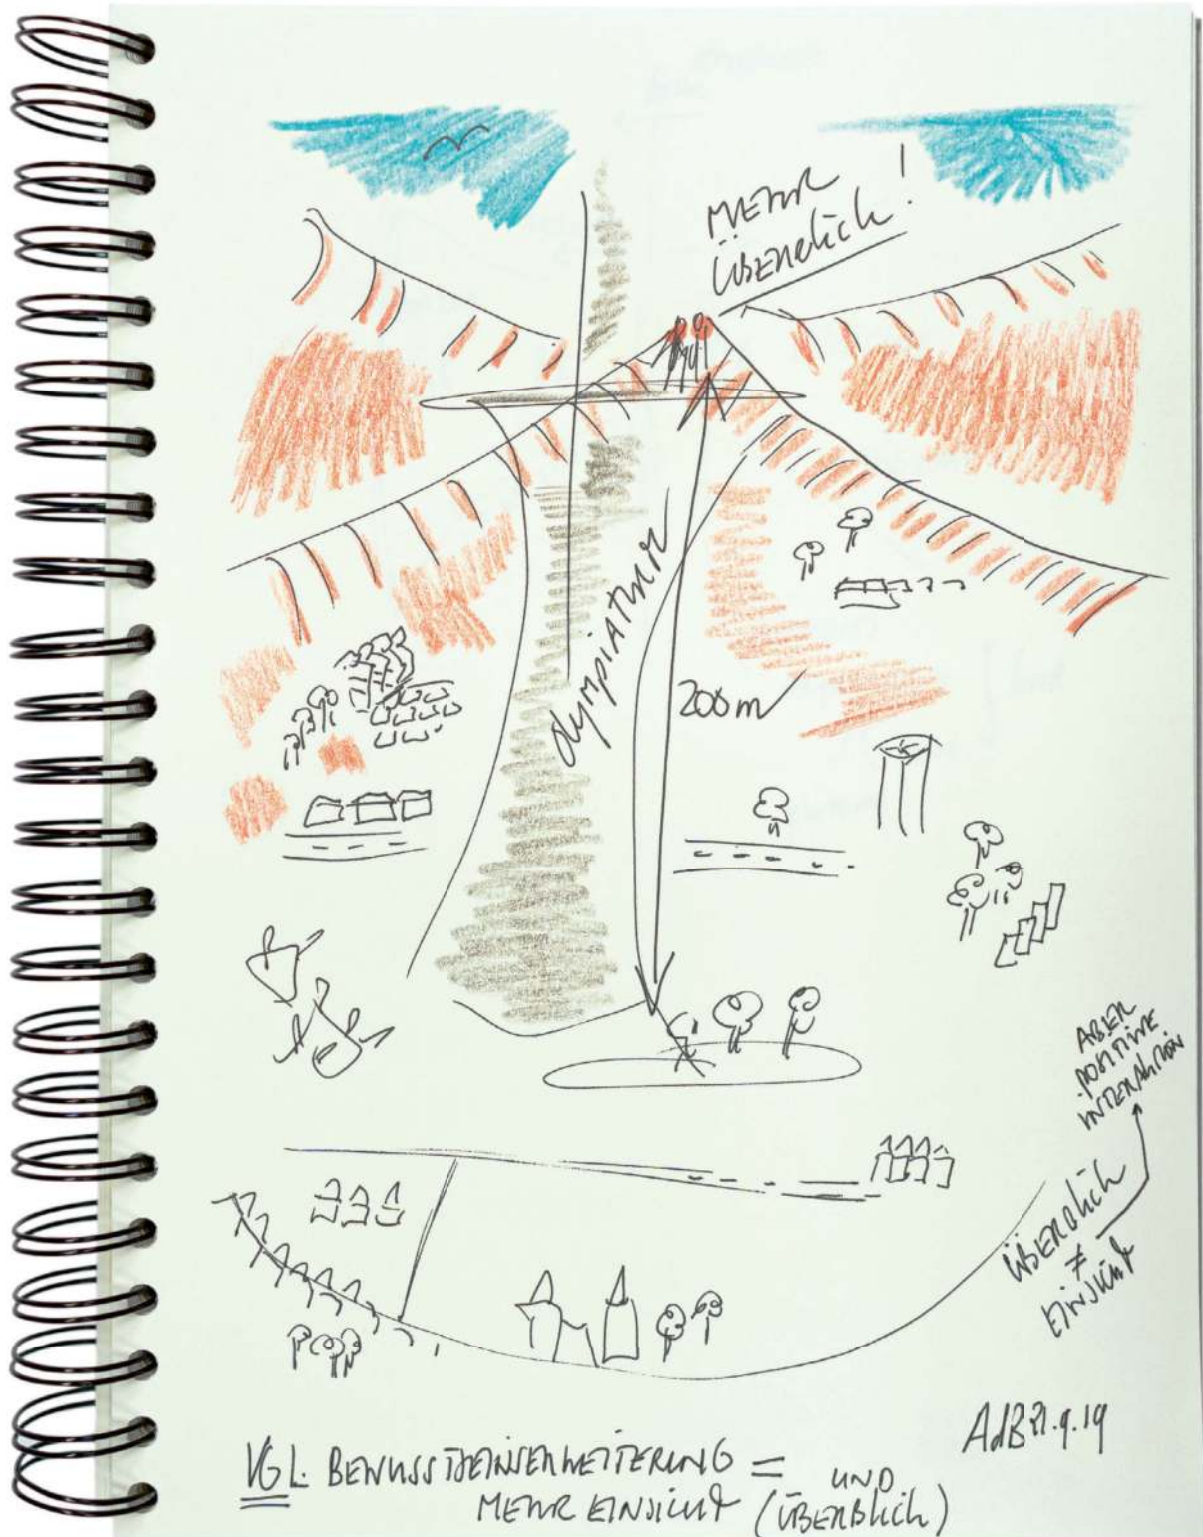 MEHR
ÜBERBlick!
Olympiaturm
200m
ABER
POSITIVE
INTERAKTION
ÜBERBlick
≠
EINSICHT
AdB 21.9.19
VGL. BEWUSSTSEINSERWEITERUNG = UND
MEHR EINSICHT (ÜBERBlick)